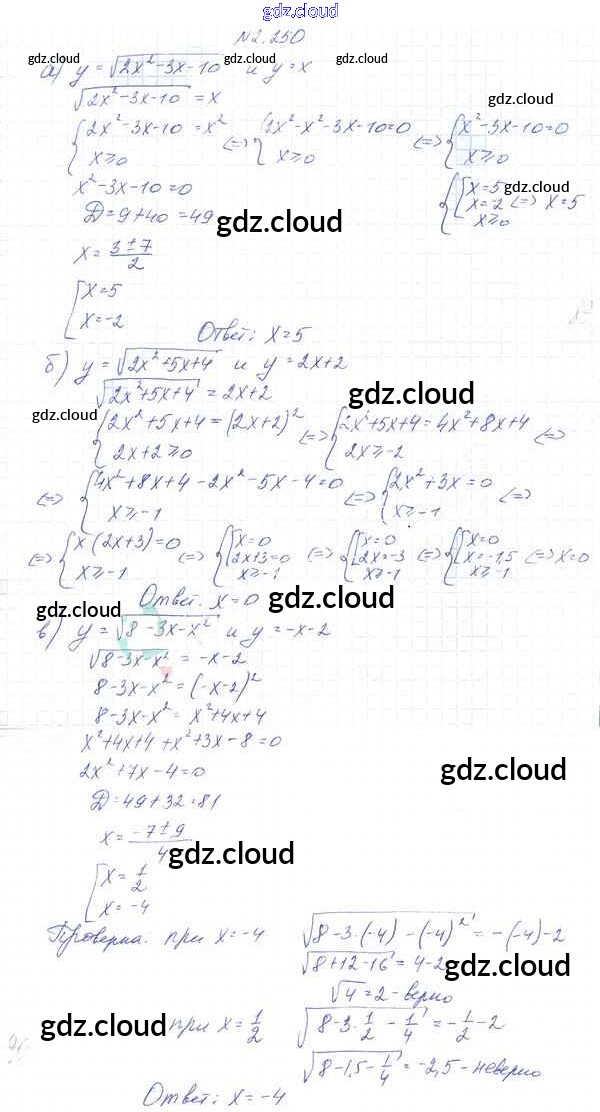 gdz.cloud
№2.250
gdz.cloud gdz.cloud gdz.cloud
а) y = √(2x² - 3x - 10) и y = x
√(2x² - 3x - 10) = x
gdz.cloud
{2x² - 3x - 10 = x² x ≥ 0 <=> {2x² - x² - 3x - 10 = 0 x ≥ 0 <=> {x² - 3x - 10 = 0 x ≥ 0
x² - 3x - 10 = 0
{[x = 5 x = -2 x ≥ 0 <=> x = 5
gdz.cloud
Д = 9 + 40 = 49
gdz.cloud gdz.cloud
x = (3 ± 7)/2
[x = 5 x = -2
Ответ: x = 5
б) y = √(2x² + 5x + 4) и y = 2x + 2
√(2x² + 5x + 4) = 2x + 2
gdz.cloud
gdz.cloud
{2x² + 5x + 4 = (2x + 2)² 2x + 2 ≥ 0 <=> {2x² + 5x + 4 = 4x² + 8x + 4 2x ≥ -2 <=>
gdz.cloud
<=> {4x² + 8x + 4 - 2x² - 5x - 4 = 0 x ≥ -1 <=> {2x² + 3x = 0 x ≥ -1 <=>
<=> {x(2x + 3) = 0 x ≥ -1 <=> {[x = 0 2x + 3 = 0 x ≥ -1 <=> {[x = 0 2x = -3 x ≥ -1 <=> {[x = 0 x = -1,5 x ≥ -1 <=> x = 0
Ответ: x = 0
gdz.cloud
gdz.cloud
в) y = √(8 - 3x - x²) и y = -x - 2
√(8 - 3x - x²) = -x - 2
8 - 3x - x² = (-x - 2)²
8 - 3x - x² = x² + 4x + 4
x² + 4x + 4 + x² + 3x - 8 = 0
2x² + 7x - 4 = 0
gdz.cloud
Д = 49 + 32 = 81
x = (-7 ± 9)/4
gdz.cloud
[x = 1/2 x = -4
Проверка: при x = -4 √(8 - 3·(-4) - (-4)²) = -(-4) - 2
√(8 + 12 - 16) = 4 - 2
gdz.cloud
√4 = 2 - верно
gdz.cloud
при x = 1/2 √(8 - 3·1/2 - 1/4) = -1/2 - 2
√(8 - 1,5 - 1/4) = -2,5 - неверно
Ответ: x = -4